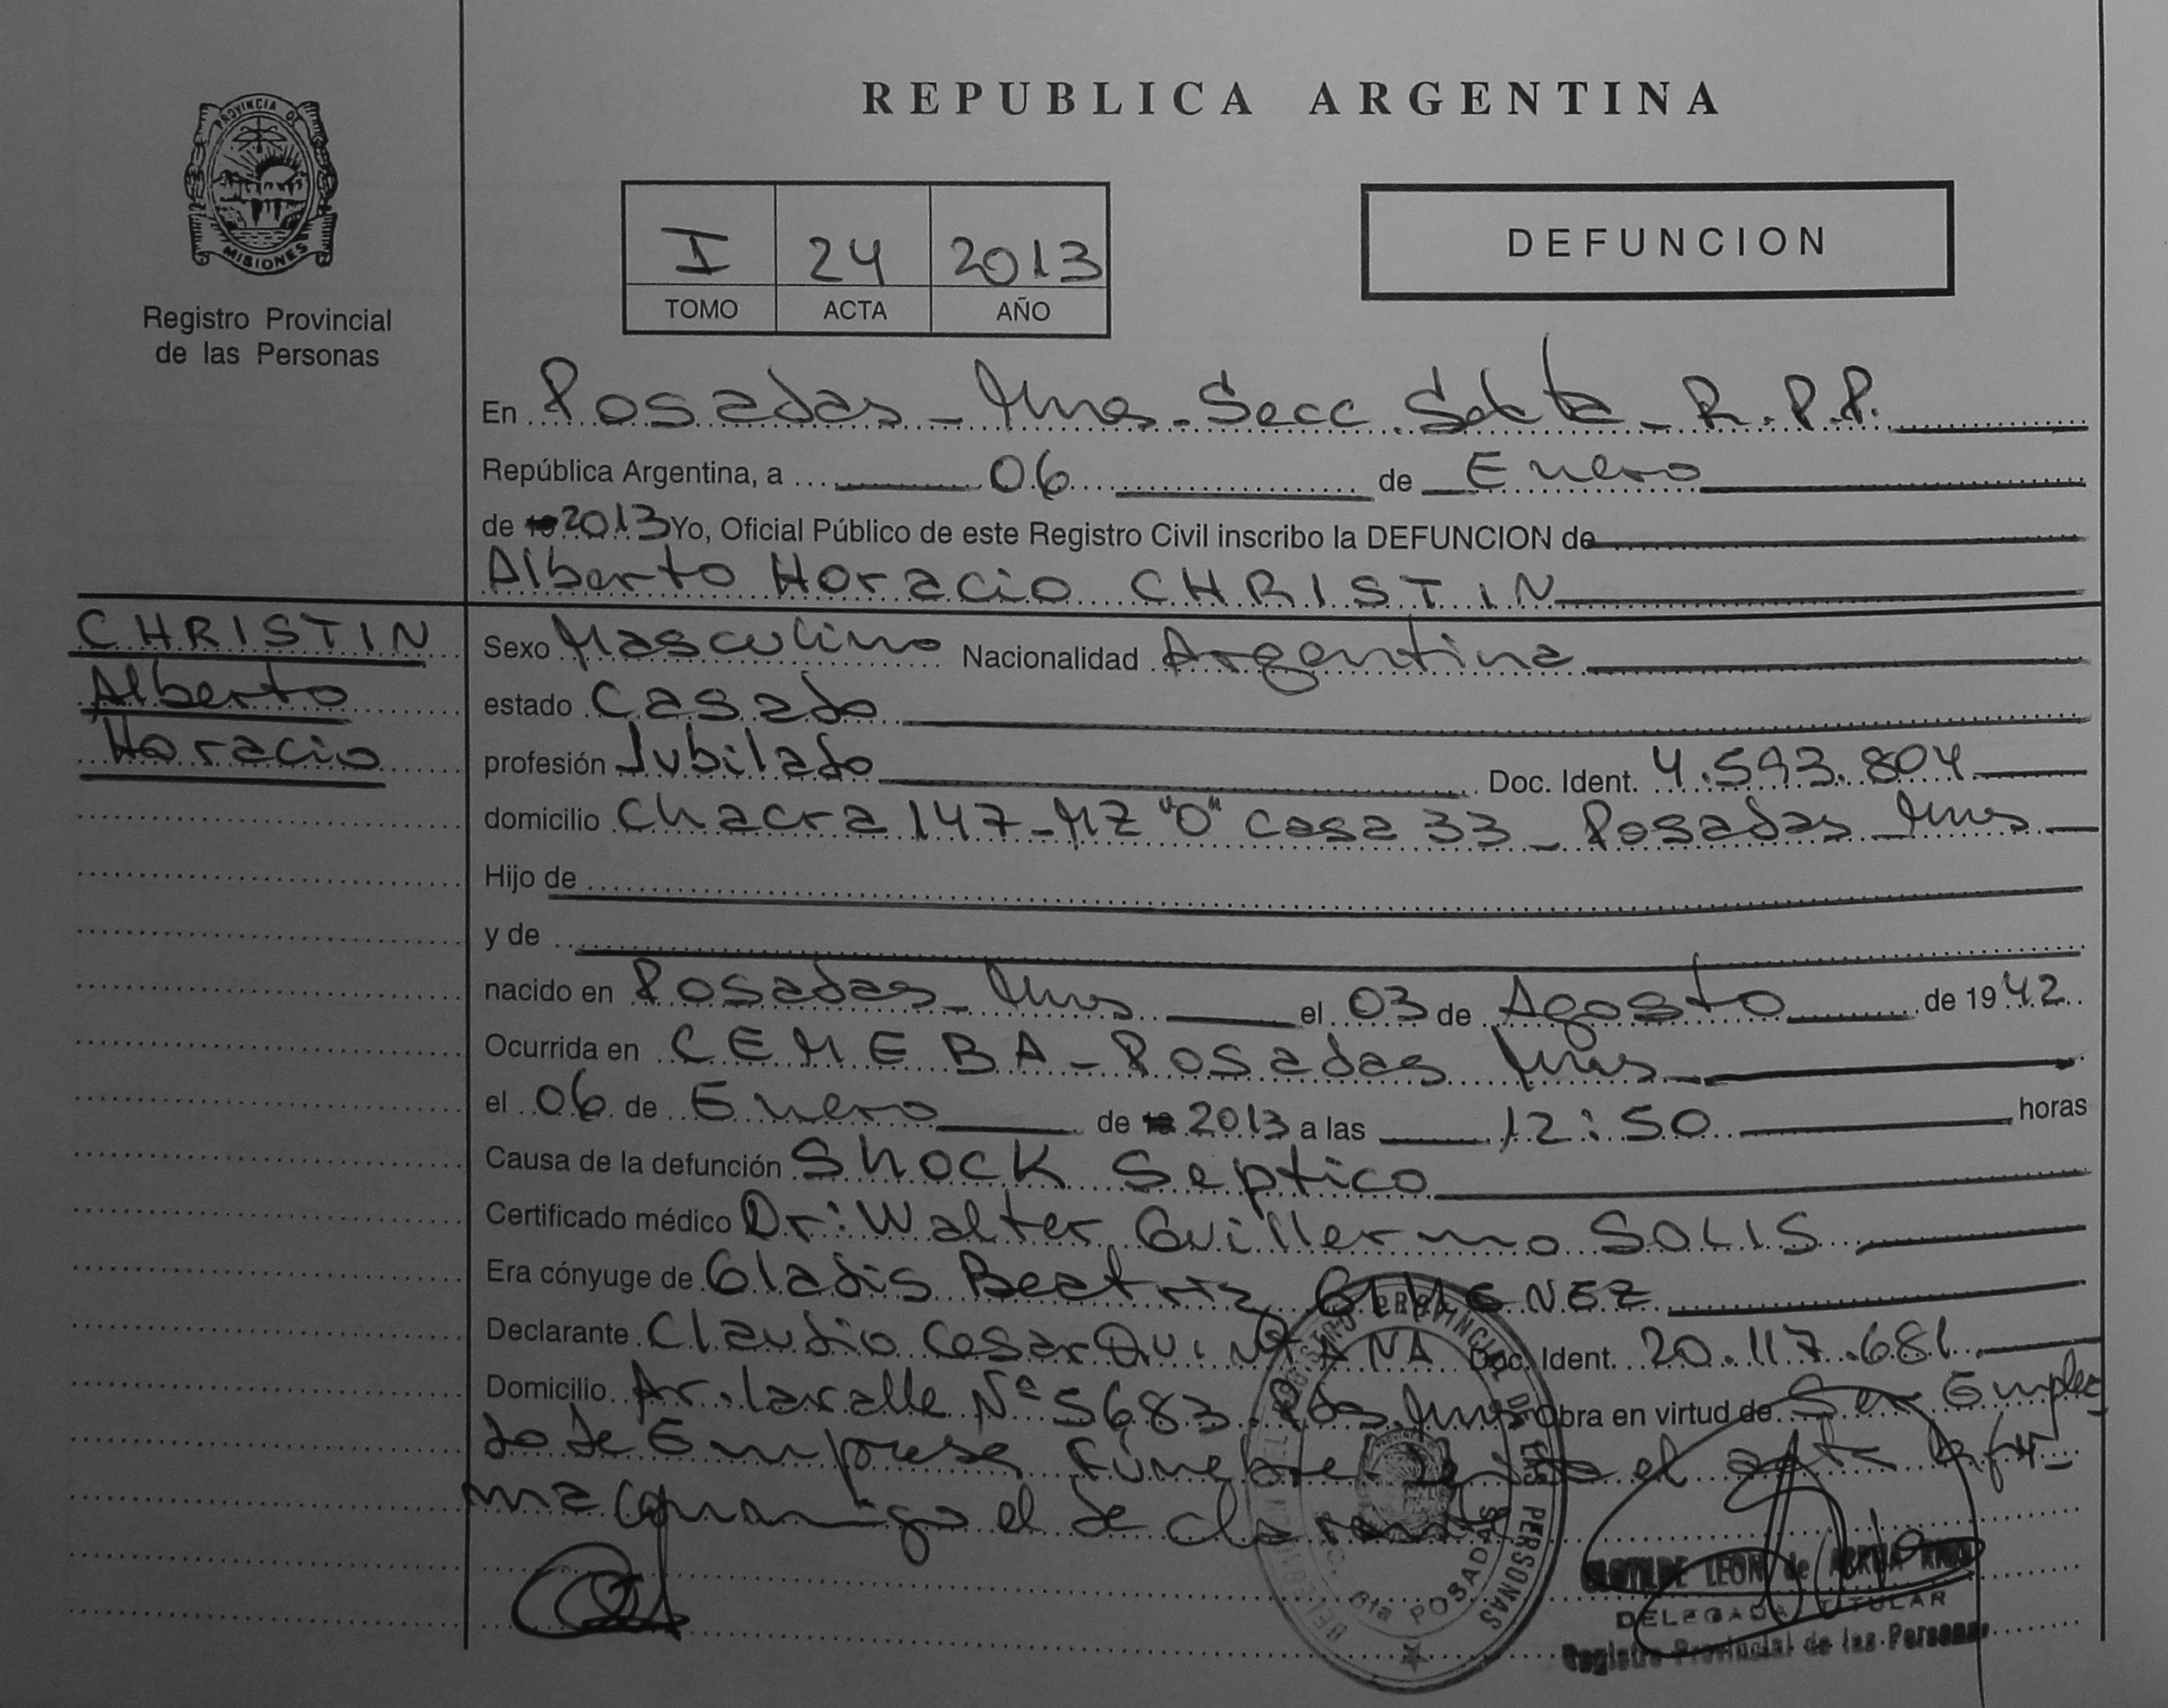 PROVINCIA DE
MISIONES
Registro Provincial
de las Personas
REPUBLICA ARGENTINA
I 24 2013
TOMO ACTA AÑO
DEFUNCION
En Posadas - Mnes - Secc. Sexta - R.P.P.
República Argentina, a 06 de Enero
de 2013 Yo, Oficial Público de este Registro Civil inscribo la DEFUNCION de
Alberto Horacio CHRISTIN
CHRISTIN
Alberto
Horacio
Sexo Masculino Nacionalidad Argentina
estado Casado
profesión Jubilado Doc. Ident. 4.593.804
domicilio Chacra 147 - MZ "O" Casa 33 - Posadas Mnes
Hijo de
y de
nacido en Posadas - Mnes el 03 de Agosto de 1942
Ocurrida en CEMEBA - Posadas Mnes
el 06 de Enero de 2013 a las 12:50 horas
Causa de la defunción Shock Septico
Certificado médico Dr: Walter Guillermo SOLIS
Era cónyuge de Gladis Beatriz GIMENEZ
Declarante Claudio Cesar QUINTANA Doc. Ident. 20.117.681
Domicilio Av. Lavalle Nº 5683. Pdas. Mnes Obra en virtud de Ser Emplea
do de Empresa Fúnebre Leida el acta la fir
ma conmigo el declarante
REGISTRO PROVINCIAL DE LAS PERSONAS
6ta POSADAS
LEON de
DELEGADA TITULAR
Registro Provincial de las Personas